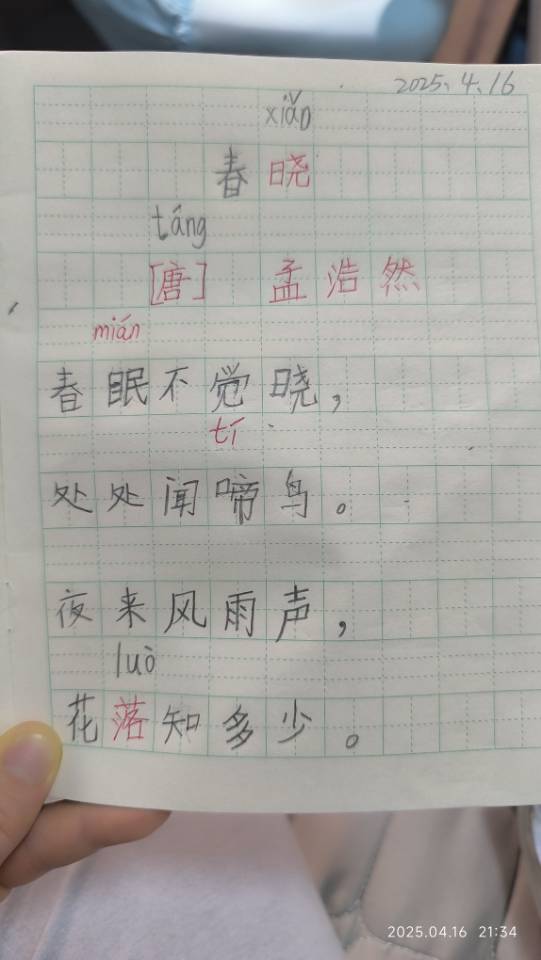 2025.4.16
xiǎo
春晓
táng
[唐] 孟浩然
mián
春眠不觉晓，
tí
处处闻啼鸟。
夜来风雨声，
luò
花落知多少。
2025.04.16 21:34